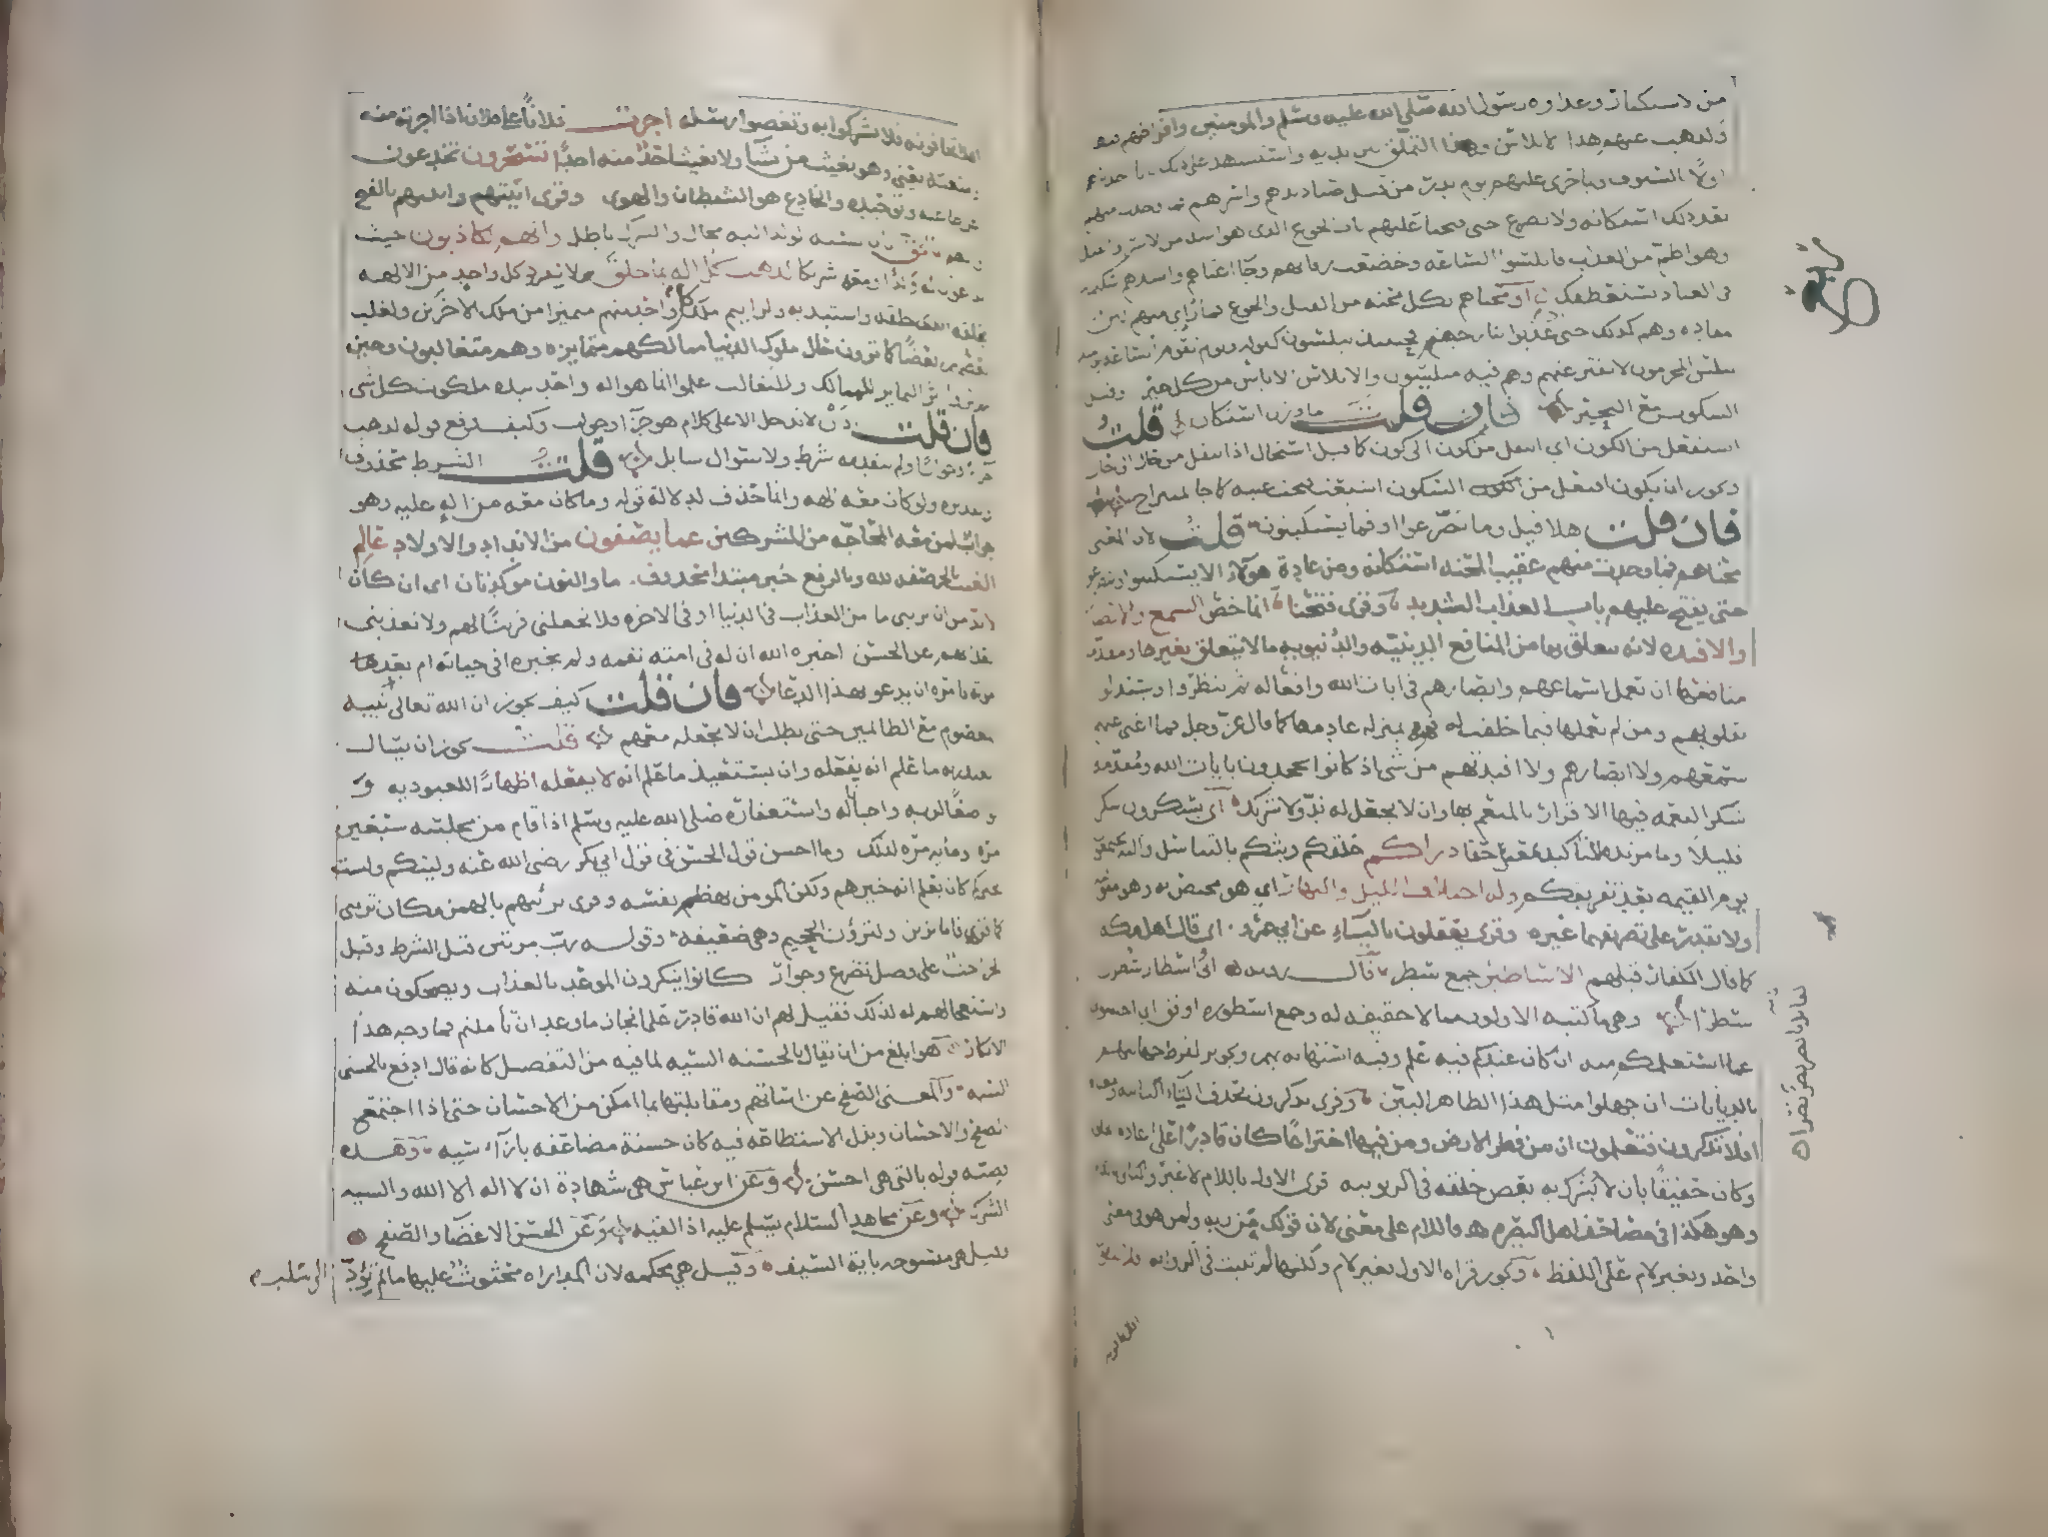 من الاستكبار وعداوه رسول الله صلى الله عليه وسلم والمومنين وافراطهم فيها
ولذهب عنهم هذا الابلاس وهذا التملق بين يديه واستشهد على ذلك بانا اخذناهم
اولا بالسيوف وبما جرى عليهم يوم بدر من قتل صناديدهم واسرهم فما وجدت منهم
بعد ذلك استكانه ولا تضرع حتى فتحنا عليهم باب الجوع الذى هو اشد من الاسر والقتل
وهو اطم من العذاب فابلسوا الساعه وخضعت رقابهم وجا اعتاهم واشدهم شكيمه
فى العناد يستعطفك او محناهم بكل محنه من القتل والجوع فما رؤى منهم لين
مقاده وهم كذلك حتى اذا عذبوا بنار جهنم فحينئذ يبلسون كقوله ويوم تقوم الساعه
يبلس المجرمون لا يفتر عنهم وهم فيه مبلسون والابلاس الاياس من كل خير وقيل
السكوت مع التحير فان قلت ما وزن استكان قلت
استفعل من الكون اى انتقل من كون الى كون كما قيل استحال اذا انتقل من حال الى حال
ويجوز ان يكون افتعل من السكون اشبعت فتحه عينه كما جا بمنتزاح
فان قلت هلا قيل وما تضرعوا او فما يستكينون قلت لان المعنى
محناهم فما وجدت منهم عقيب المحنه استكانه ومن عادة هولاء الا يستكينوا ويتضرعوا
حتى يفتح عليهم باب العذاب الشديد وقرى فتحنا انما خص السمع والابصار
والافيده لانه يتعلق بها من المنافع الدينيه والدنيويه ما لا يتعلق بغيرها ومقدمه
منافعها ان تعمل اسماعهم وابصارهم فى ايات الله وافعاله ثم ينظروا ويستدلو
بقلوبهم ومن لم يعملها فيما خلقت له فهو بمنزله عادمها كما قال عز وجل فما اغنى عنهم
سمعهم ولا ابصارهم ولا افيدتهم من شى اذ كانوا يجحدون بايات الله ومقدمه
شكر النعمه فيها الاقرار بالمنعم بها وان لا يجعل له ند ولا شريك اى تشكرون شكرا
قليلا وما مزيده للتاكيد بمعنى حقا ذراكم خلقكم وبثكم بالتناسل واليه تجمعون
يوم القيمه بعد تفريقكم وله اختلاف الليل والنهار اى هو مختص به وهو متوليه
ولا يقدر على تصريفهما غيره وقرى يعقلون بالياء عن ابى عمرو اى قال اهل مكه
كما قال الكفار قبلهم الاساطير جمع سطر قال روبه انى واسطار سطرن
سطرا وهى ما كتبه الاولون مما لا حقيقه له وجمع اسطوره اوفق اى اجيبونى
عما استعلمتكم منه ان كان عندكم فيه علم وفيه استهانه بهم وتجويز لفرط جهالتهم
بالديانات ان جهلوا مثل هذا الظاهر البين وقرى تذكرون بحذف التاء الثانيه ومعناه
افلا تتذكرون فتعلمون ان من فطر الارض ومن فيها اختراعا كان قادرا على اعاده الخلق
وكان حقيقا بان لا يشرك به بعض خلقه فى الربوبيه قرى الاول باللام لا غير
وهو هكذا فى مصاحف اهل البصره فاللام على معنى لان قولك من ربه ولمن هو فى معنى
واحد وبغير لام على اللفظ ويجوز قراه الاول بغير لام ولكنها لم تثبت فى الروايه
افلا تخافونه فلا تشركوا به وتعصوا رسله اجرت فلانا على فلان اذا اجرته منه
ومنعته يعنى وهو يغيث من يشا ولا يغيث احد منه احدا تسحرون تخدعون
عن توحيده والخادع هو الشيطان والهوى وقرى اتيتهم واتيتهم بالفتح
بالحق بان نسبه الولد اليه محال والشرك باطل وانهم لكاذبون حيث
يدعون له ولدا ومعه شريكا لذهب كل اله بما خلق لانفرد كل واحد من الالهه
بخلقه الذى خلقه واستبد به ولرايتم ملك كل واحد منهم متميزا من ملك الاخرين ولغلب
بعضهم بعضا كما ترون حال ملوك الدنيا ممالكهم متمايزه وهم متغالبون وحين
لم تروا اثر التمايز للممالك وللتغالب فاعلموا انما هو اله واحد بيده ملكوت كل شى
فان قلت اذن لا تدخل الا على كلام هو جزا وجواب وكيف وقع قوله لذهب
جزا وجوابا ولم يتقدمه شرط ولا سوال سايل قلت الشرط محذوف
وتقديره ولو كان معه الهه وانما حذف لدلالة قوله وما كان معه من اله عليه وهو
جواب لمن معه المحاجه من المشركين عما يصفون من الانداد والاولاد عالم
الغيب بالجر صفه لله وبالرفع خبر مبتدا محذوف ما والنون موكدتان اى ان كان
لابد من ان ترينى ما من العذاب فى الدنيا او فى الاخره فلا تجعلنى قرينا لهم ولا تعذبنى
بعذابهم عن الحسن اخبره الله ان له فى امته نقمه ولم يخبره افى حياته ام بعدها
فامره ان يدعو بهذا الدعا فان قلت كيف يجوز ان الله تعالى نبيه
المعصوم مع الظالمين حتى يطلب ان لا يجعله معهم قلت يجوز ان يسال
العبد ربه ما علم انه يفعله وان يستعيذ ما علم انه لا يفعله اظهارا للعبوديه و
تواضعا لربه واخباتا له واستغفاره صلى الله عليه وسلم اذا قام من مجلسه سبعين
مره او مايه مره لذلك وما احسن قول الحسن فى قول ابى بكر رضى الله عنه وليتكم ولست
بخيركم كان يعلم انه خيرهم ولكن المومن يهضم نفسه وقرى ترئنهم بالهمز مكان ترينى
كما قرى فاما ترئن ولترؤن الجحيم وهى ضعيفه وقوله رب مرتين قبل الشرط وقبل
الجزا حث على فضل تضرع وجوار كانوا ينكرون الموعد بالعذاب ويضحكون منه
واستعجالهم له لذلك فقيل لهم ان الله قادر على انجاز ما وعد ان تاملتم فما وجه هذا
الانكار هو ابلغ من ان يقال بالحسنه السيه لما فيه من التفضيل كانه قال ادفع بالحسنى
السيه والمعنى الصفح عن اساتهم ومقابلتها بما امكن من الاحسان حتى اذا اجتمع
الصفح والاحسان وبذل الاستطاعه فيه كان حسنة مضاعفه بازاء سيه وهذه
قضيه قوله بالتى هى احسن وعن ابن عباس هى شهادة ان لا اله الا الله والسيه
الشرك وعن مجاهد السلام يسلم عليه اذا لقيه وعن الحسن الاغضا والصفح
وقيل هى منسوخه باية السيف وقيل هى محكمه لان المداراه محثوث عليها ما لم تؤد
الى ثلم